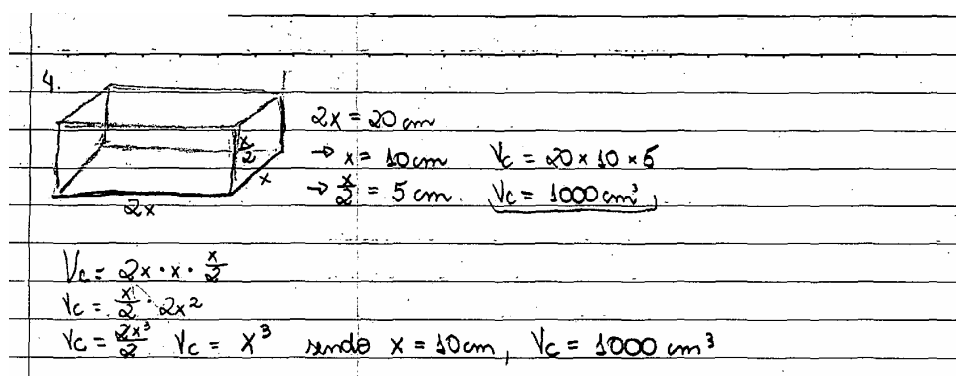 4.
2x = 20 cm
→ x = 10 cm Vc = 20 × 10 × 5
→ x/2 = 5 cm. Vc = 1000 cm³
x/2
x
2x
Vc = 2x · x · x/2
Vc = x/2 · 2x²
Vc = 2x³/2 Vc = x³ sendo x = 10 cm, Vc = 1000 cm³